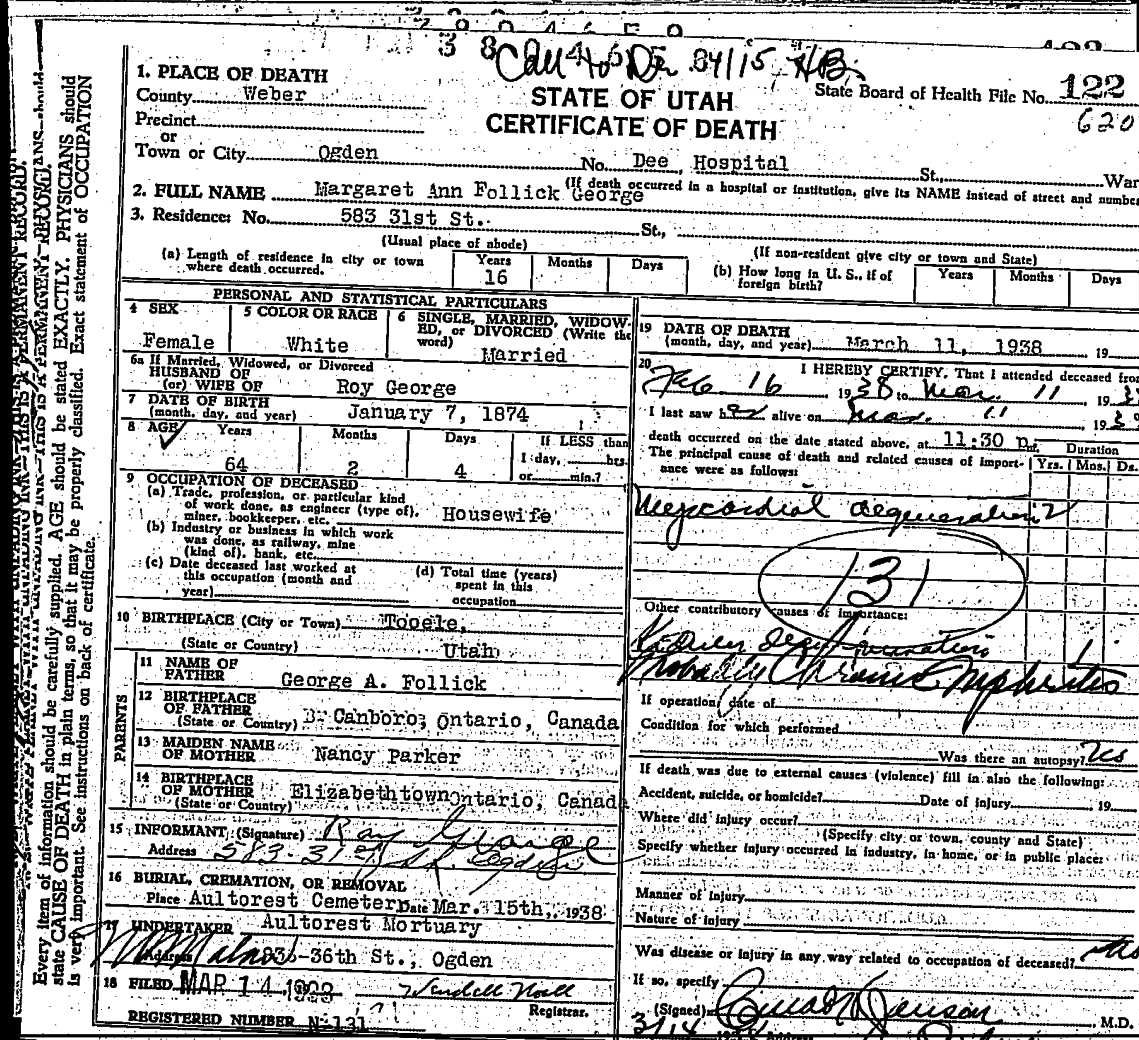 1. PLACE OF DEATH
County Weber
Precinct
or
Town or City Ogden No. Dee Hospital St., War
STATE OF UTAH
CERTIFICATE OF DEATH
State Board of Health File No. 122
620
(If death occurred in a hospital or institution, give its NAME instead of street and number
2. FULL NAME Margaret Ann Follick George
3. Residence: No. 583 31st St. St.,
(Usual place of abode) (If non-resident give city or town and State)
(a) Length of residence in city or town where death occurred. Years 16 Months Days
(b) How long in U. S., if of foreign birth? Years Months Days
PERSONAL AND STATISTICAL PARTICULARS
4 SEX Female
5 COLOR OR RACE White
6 SINGLE, MARRIED, WIDOWED, or DIVORCED (Write the word) Married
6a If Married, Widowed, or Divorced
HUSBAND OF
(or) WIFE OF Roy George
7 DATE OF BIRTH
(month, day, and year) January 7, 1874
8 AGE Years Months Days If LESS than
1 day, hrs.
64 2 4 or min.?
9 OCCUPATION OF DECEASED
(a) Trade, profession, or particular kind
of work done, as engineer (type of),
miner, bookkeeper, etc. Housewife
(b) Industry or business in which work
was done, as railway, mine
(kind of), bank, etc.
(c) Date deceased last worked at
this occupation (month and
year)
(d) Total time (years)
spent in this
occupation
10 BIRTHPLACE (City or Town) Tooele,
(State or Country) Utah
PARENTS
11 NAME OF
FATHER George A. Follick
12 BIRTHPLACE
OF FATHER
(State or Country) B. Canboro, Ontario, Canada
13 MAIDEN NAME
OF MOTHER Nancy Parker
14 BIRTHPLACE
OF MOTHER
(State or Country) Elizabethtown Ontario, Canada
15 INFORMANT (Signature) Ray George
Address 583-31st St. Ogden
16 BURIAL, CREMATION, OR REMOVAL
Place Aultorest Cemetery Date Mar. 15th, 1938
17 UNDERTAKER Aultorest Mortuary
Address 836-36th St., Ogden
18 FILED MAR 14 1938
Registrar.
REGISTERED NUMBER N-131
19 DATE OF DEATH
(month, day, and year) March 11, 1938 19
20 I HEREBY CERTIFY, That I attended deceased from
Feb 16 1938 to Mar. 11 19
I last saw h alive on Mar. 11 193
death occurred on the date stated above, at 11:30 p m. Duration
The principal cause of death and related causes of importance were as follows: Yrs. Mos. Ds.
Myocardial degeneration
131
Other contributory causes of importance:
Kidney degeneration
Probably Chronic Nephritis
If operation, date of
Condition for which performed
Was there an autopsy? Yes
If death was due to external causes (violence) fill in also the following:
Accident, suicide, or homicide? Date of injury 19
Where did injury occur?
(Specify city or town, county and State)
Specify whether injury occurred in industry, in home, or in public place:
Manner of injury
Nature of injury
Was disease or injury in any way related to occupation of deceased? No
If so, specify
(Signed) M.D.
3/14
Every item of information should be carefully supplied. AGE should be stated EXACTLY. PHYSICIANS should
state CAUSE OF DEATH in plain terms, so that it may be properly classified. Exact statement of OCCUPATION
is very important. See instructions on back of certificate.